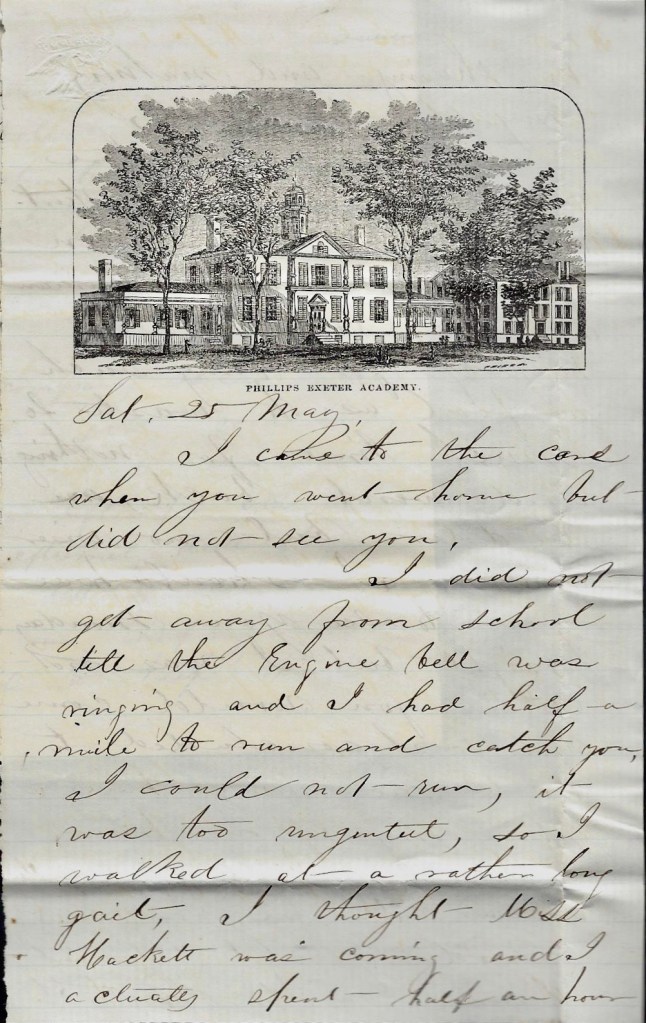 PHILLIPS EXETER ACADEMY.
Sat. 25 May,
I came to the cars
when you went home but
did not see you,
I did not
get away from school
till the Engine bell was
ringing and I had half a
mile to run and catch you,
I could not run, it
was too ungenteel, so I
walked at a rather long
gait, I thought Miss
Hackett was coming and I
spent half an hour